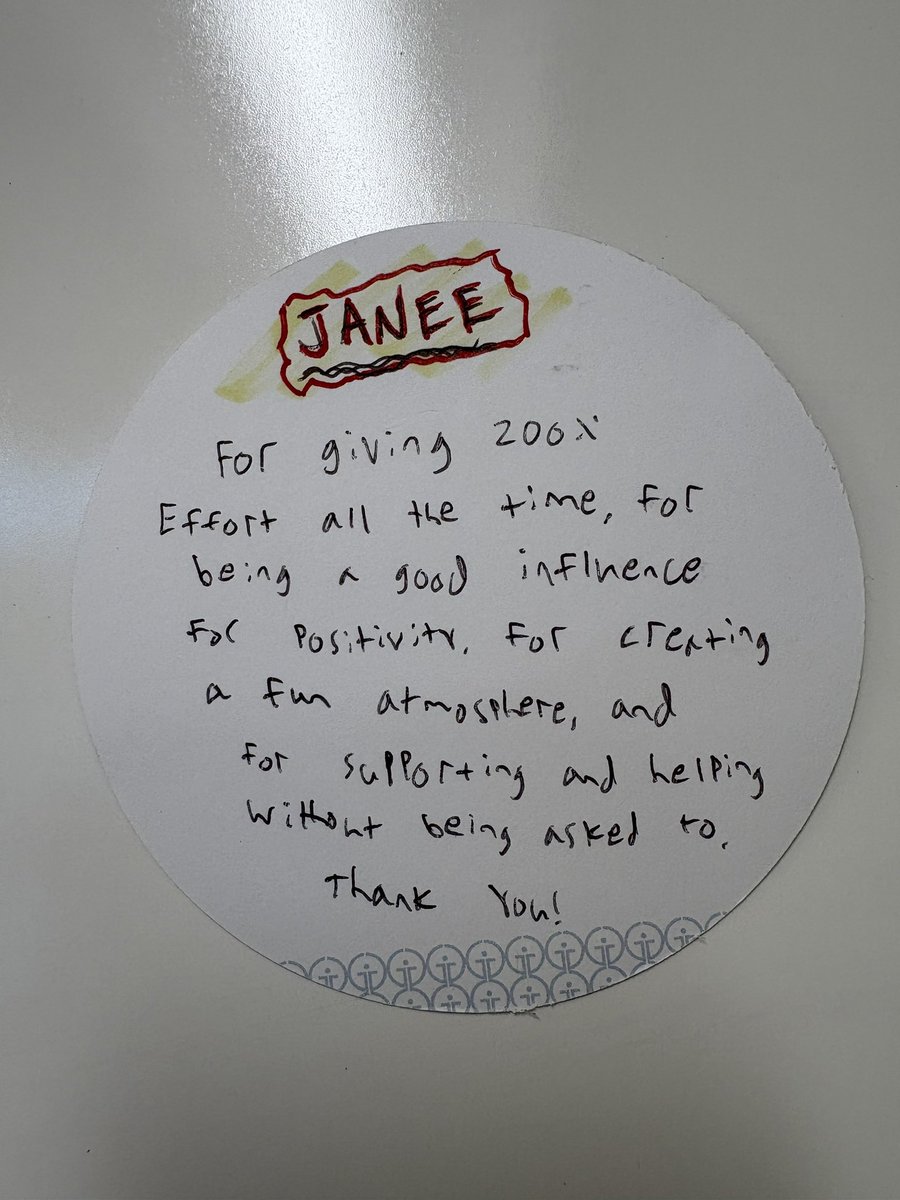 JANEE
For giving 200%
Effort all the time, for
being a good influence
for positivity. For creating
a fun atmosphere, and
for supporting and helping
without being asked to.
Thank You!